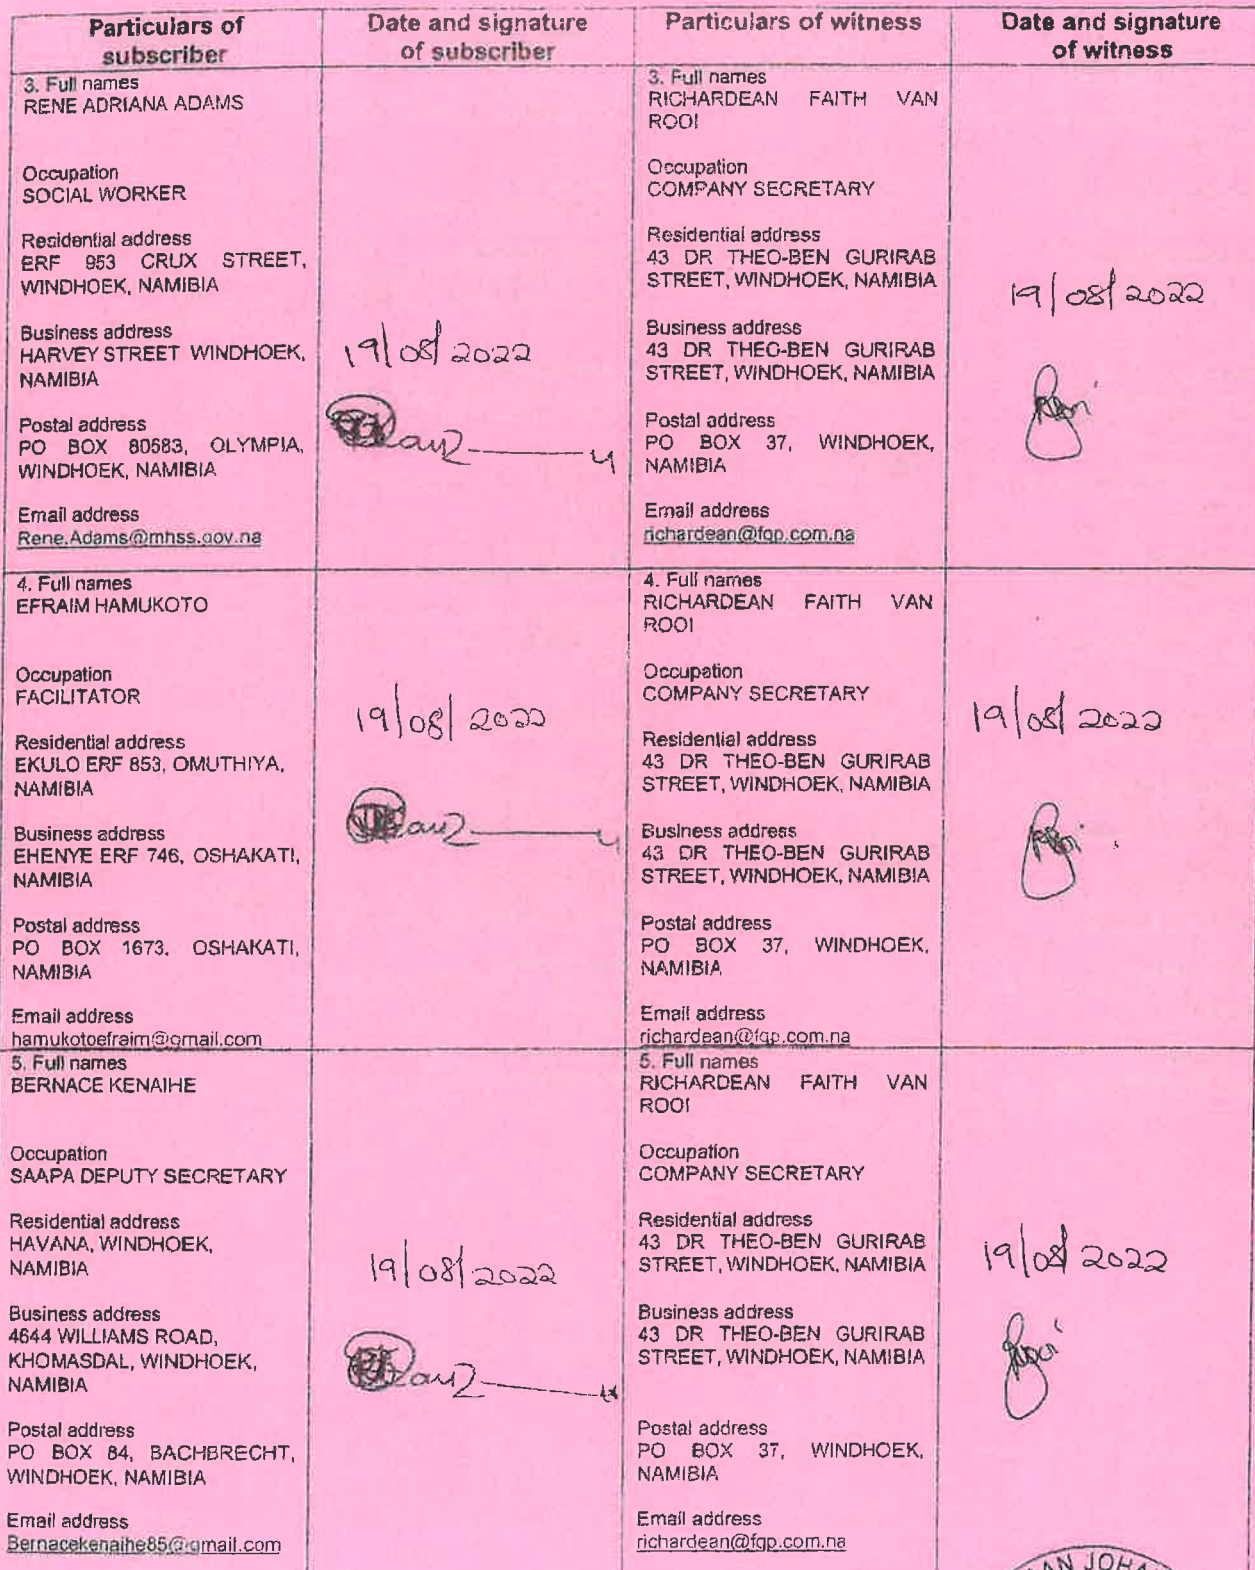 Particulars of
subscriber
Date and signature
of subscriber
Particulars of witness
Date and signature
of witness
3. Full names
RENE ADRIANA ADAMS
Occupation
SOCIAL WORKER
Residential address
ERF 953 CRUX STREET,
WINDHOEK, NAMIBIA
Business address
HARVEY STREET WINDHOEK,
NAMIBIA
Postal address
PO BOX 80583, OLYMPIA,
WINDHOEK, NAMIBIA
Email address
Rene.Adams@mhss.gov.na
19/08/2022
3. Full names
RICHARDEAN FAITH VAN
ROOI
Occupation
COMPANY SECRETARY
Residential address
43 DR THEO-BEN GURIRAB
STREET, WINDHOEK, NAMIBIA
Business address
43 DR THEO-BEN GURIRAB
STREET, WINDHOEK, NAMIBIA
Postal address
PO BOX 37, WINDHOEK,
NAMIBIA
Email address
richardean@fgp.com.na
19/08/2022
4. Full names
EFRAIM HAMUKOTO
Occupation
FACILITATOR
Residential address
EKULO ERF 853, OMUTHIYA,
NAMIBIA
Business address
EHENYE ERF 746, OSHAKATI,
NAMIBIA
Postal address
PO BOX 1673, OSHAKATI,
NAMIBIA
Email address
hamukotoefraim@gmail.com
19/08/2022
4. Full names
RICHARDEAN FAITH VAN
ROOI
Occupation
COMPANY SECRETARY
Residential address
43 DR THEO-BEN GURIRAB
STREET, WINDHOEK, NAMIBIA
Business address
43 DR THEO-BEN GURIRAB
STREET, WINDHOEK, NAMIBIA
Postal address
PO BOX 37, WINDHOEK,
NAMIBIA
Email address
richardean@fgp.com.na
19/08/2022
5. Full names
BERNACE KENAIHE
Occupation
SAAPA DEPUTY SECRETARY
Residential address
HAVANA, WINDHOEK,
NAMIBIA
Business address
4644 WILLIAMS ROAD,
KHOMASDAL, WINDHOEK,
NAMIBIA
Postal address
PO BOX 84, BACHBRECHT,
WINDHOEK, NAMIBIA
Email address
Bernacekenaihe85@gmail.com
19/08/2022
5. Full names
RICHARDEAN FAITH VAN
ROOI
Occupation
COMPANY SECRETARY
Residential address
43 DR THEO-BEN GURIRAB
STREET, WINDHOEK, NAMIBIA
Business address
43 DR THEO-BEN GURIRAB
STREET, WINDHOEK, NAMIBIA
Postal address
PO BOX 37, WINDHOEK,
NAMIBIA
Email address
richardean@fgp.com.na
19/08/2022